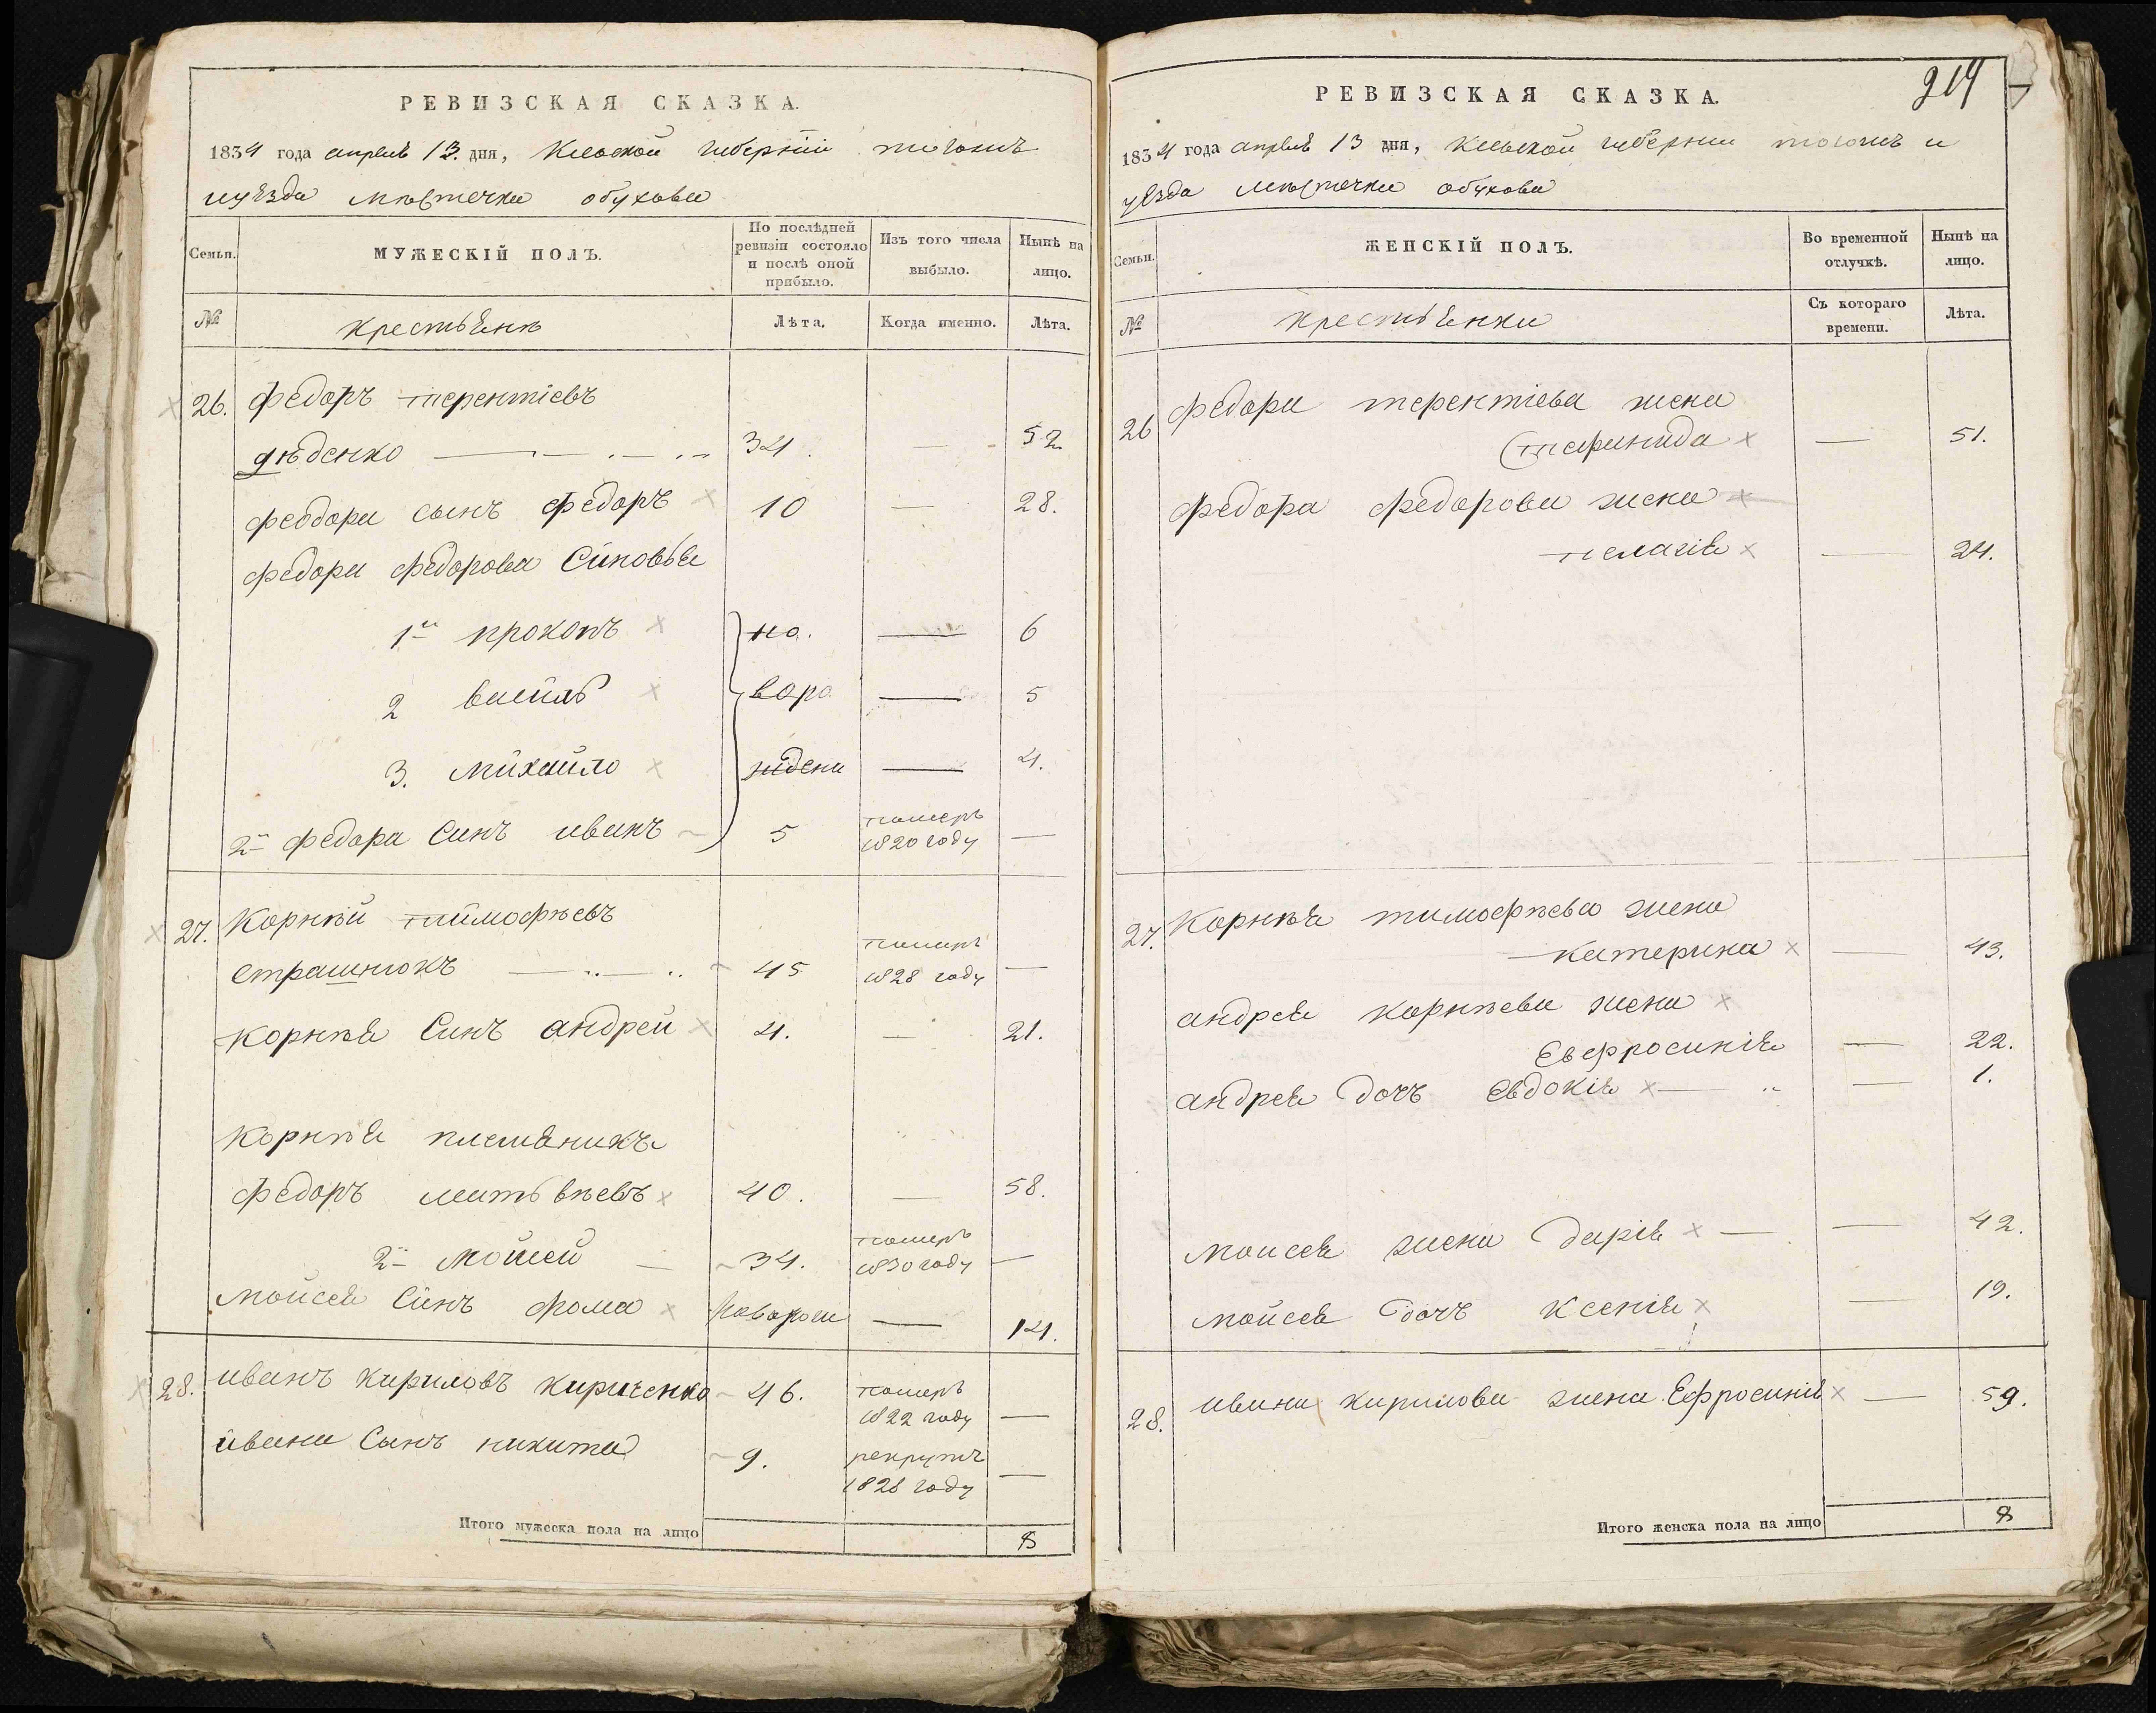 РЕВИЗСКАЯ СКАЗКА.
1834 года апреля 13. дня, Киевской губернии тогожъ
иуѣзда местечка обухова
Семьи.
МУЖЕСКІЙ ПОЛЪ.
По послѣдней ревизіи состояло и послѣ оной прибыло.
Изъ того числа выбыло.
Нынѣ на лицо.
№
крестьяне
Лѣта.
Когда именно.
Лѣта.
26. федоръ терентіевъ
дѣденко 34. — 52
феодора сынъ федоръ 10 — 28.
федора федорова Синовья
1й прокопъ но. — 6
2 василь воро — 5
3. михайло ждени — 4.
2й федора Синъ иванъ 5 померъ 1820 году —
27. Корнѣй тимофѣевъ
страшнюкъ 45 померъ 1828 году —
корнѣя Синъ андрей 4. — 21.
корнѣя племяникъ
федоръ матьвѣевъ 40. — 58.
2й мойсей — 34. померъ 1830 году —
мойсея Синъ фома новорож — 14.
28. иванъ кириловъ кириченко 46. померъ 1822 году —
ивана Сынъ никита 9. рекрутъ 1828 году —
Итого мужеска пола на лицо 8
214
РЕВИЗСКАЯ СКАЗКА.
1834 года апреля 13 дня, Киевской губернии тогожъ и
уѣзда местечка обухова
Семьи.
ЖЕНСКІЙ ПОЛЪ.
Во временной отлучкѣ.
Нынѣ на лицо.
№
крестьянки
Съ котораго времени.
Лѣта.
26 федора терентіева жена
— 51.
федора федорова жена
пелагія — 24.
27. Корнѣя тимофѣева жена
катерина — 43.
андрея корнѣева жена
Евфросинія — 22.
андрея дочъ Евдокія — 1.
моисея жена дарія — 42.
мойсея дочъ ксенія — 19.
28. ивана кирилова жена Ефросинія — 59.
Итого женска пола на лицо 8